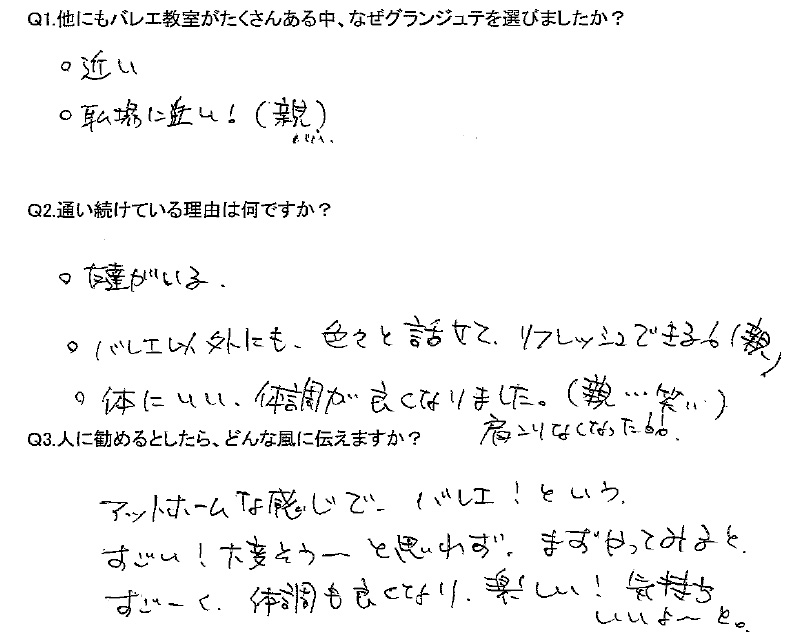 Q1.他にもバレエ教室がたくさんある中、なぜグランジュテを選びましたか？
○ 近い
○ 職場に近い！（親）
Q2.通い続けている理由は何ですか？
○ 友達がいる．
○ バレエ以外にも、色々と話せて、リフレッシュできる。（親）
○ 体にいい、体調が良くなりました。（親…笑…）
肩こりなくなった!!。
Q3.人に勧めるとしたら、どんな風に伝えますか？
アットホームな感じで、バレエ！という、
すごい！大変そう〜と思わず、まずやってみると、
すご〜く、体調も良くなり、楽しい！気持ち
いいよ〜と。